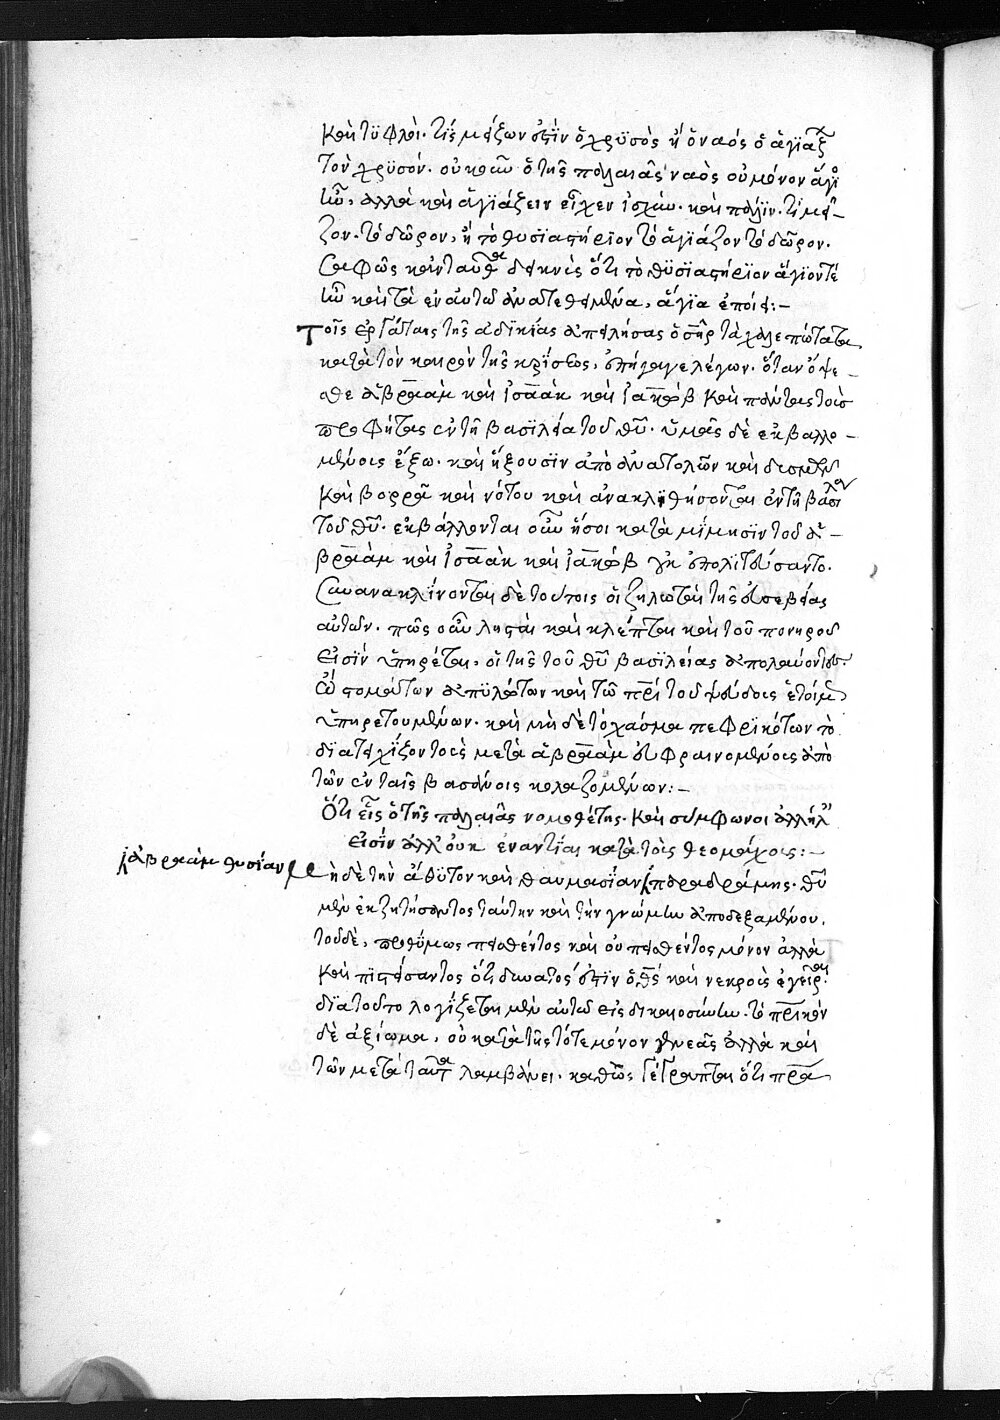 καὶ τυφλοί· τίς μείζων ἐστὶν ὁ χρυσὸς ἢ ὁ ναὸς ὁ ἁγιάζ
τὸν χρυσόν. οὐκοῦν ὁ τῆς παλαιᾶς ναὸς οὐ μόνον ἅγιος
ἦν, ἀλλὰ καὶ ἁγιάζειν εἶχεν ἰσχύν. καὶ πάλιν. τί μεῖ-
ζον. τὸ δῶρον, ἢ τὸ θυσιαστήριον τὸ ἁγιάζον τὸ δῶρον.
σαφῶς κἀνταῦθα δεικνὺς ὅτι τὸ θυσιαστήριον ἅγιόν τε
ἦν καὶ τὰ ἐν αὐτῷ ἀνατεθειμένα, ἅγια ἐποίει:-
Τοῖς ἐργάταις τῆς ἀδικίας ἀπειλήσας ὁ σὴρ τὰ χαλεπώτατα
κατὰ τὸν καιρὸν τῆς κρίσεως, ἐπήγαγε λέγων. ὅταν ὄψε-
σθε ἀβραὰμ καὶ ἰσαὰκ καὶ ἰακὼβ καὶ πάντας τοὺς
προφήτας ἐν τῇ βασιλείᾳ τοῦ θυ. ὑμᾶς δὲ ἐκβαλλο-
μένους ἔξω. καὶ ἥξουσιν ἀπὸ ἀνατολῶν καὶ δυσμῶν
καὶ βορρᾶ καὶ νότου καὶ ἀνακλιθήσονται ἐν τῇ βασιλεία
τοῦ θυ. ἐκβάλλονται οὖν ὅσοι κατὰ μίμησιν τοῦ ἀ-
βραὰμ καὶ ἰσαὰκ καὶ ἰακὼβ οὐκ ἐπολιτεύσαντο.
συνανακλίνονται δὲ τούτοις οἱ ζηλωταὶ τῆς εὐσεβείας
αὐτῶν. πῶς οὖν λῃσταὶ καὶ κλέπται καὶ τοῦ πονηροῦ
εἰσὶν ὑπηρέται, οἱ τῆς τοῦ θυ βασιλείας ἀπολαύοντες.
ὢ στομάτων ἀπυλώτων καὶ τῷ πρι τοῦ ψεύδους ἑτοίμως
ὑπηρετουμένων. καὶ μὴ δὲ τὸ χάσμα πεφρικότων τὸ
διατειχίζον τοὺς μετὰ ἀβραὰμ εὐφραινομένους ἀπὸ
τῶν ἐν ταῖς βασάνοις κολαζομένων:-
Ὅτι εἷς ὁ τῆς παλαιᾶς νομοθέτης. καὶ σύμφωνοι ἀλλήλ
εἰσὶν ἀλλ' οὐκ ἐναντίαι κατὰ τοὺς θεομάχους:-
ἀβραὰμ θυσίαν
ἡ δὲ τὴν ἄθυτον καὶ θαυμασίαν παραδράμῃς. θυ
μὲν ἐκζητήσαντος ταύτην καὶ τὴν γνώμην ἀποδεξαμένου,
τοῦ δὲ, προθύμως πεισθέντος καὶ οὐ πεισθέντος μόνον ἀλλὰ
καὶ πιστεύσαντος ὅτι δυνατός ἐστιν ὁ θς καὶ νεκροὺς ἐγεῖραι.
διὰ τοῦτο λογίζεται μὲν αὐτῷ εἰς δικαιοσύνην. τὸ πρικὸν
δὲ ἀξίωμα, οὐ κατὰ τῆς τότε μόνον γενεᾶς ἀλλὰ καὶ
τῶν μετὰ ταῦτα λαμβάνει. καθὼς γέγραπται ὅτι πρα